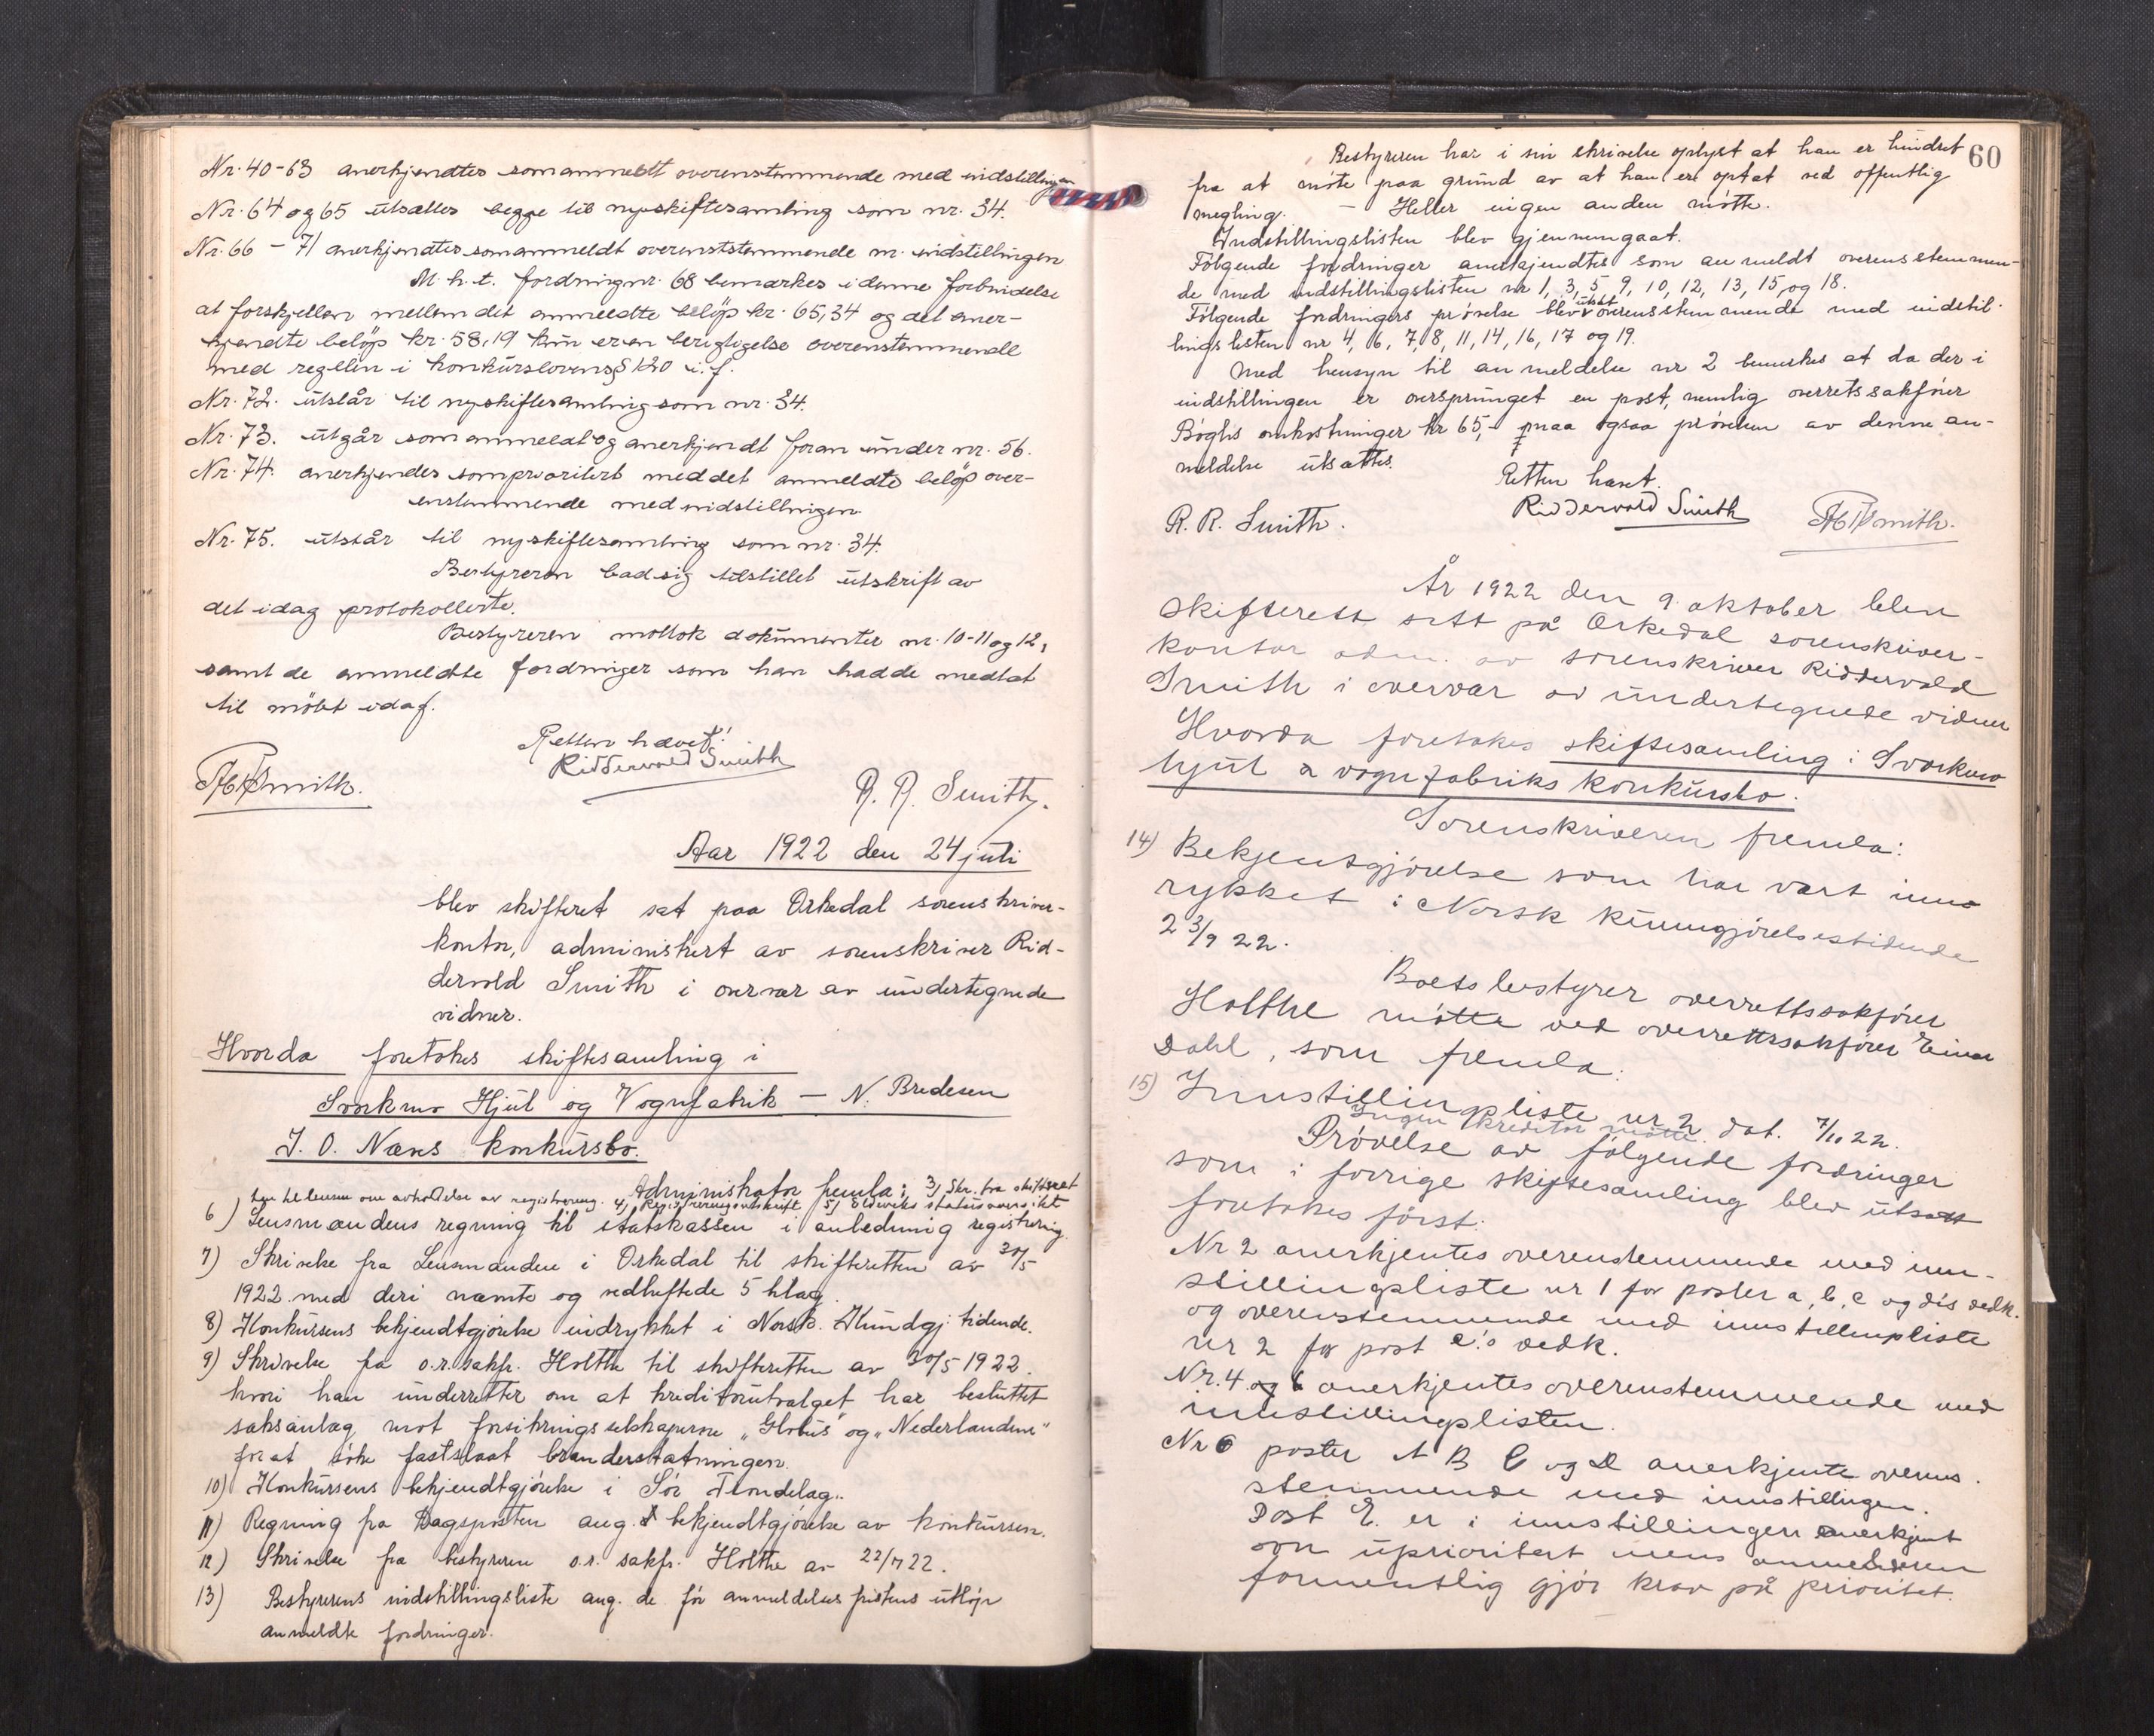 Nr. 40-63 anerkjendtes som anmeldt overenstemmende med indstillingen
Nr. 64 og 65 utsættes begge til ny skiftesamling som nr. 34.
Nr. 66 - 71 anerkjendtes som anmeldt overenststemmende m. indstillingen
M. h. t. fordring nr. 68 bemerkes i denne forbindelse
at forskjellen mellem det anmeldte beløp kr. 65,34 og det aner-
kjendte beløp kr. 58,19 kun er en berigtigelse overenstemmende
med regelen i konkurslovens § 120 i. f.
Nr. 72. utstår til ny skiftesamling som nr. 34.
Nr. 73. utgår som anmeldt og anerkjendt foran under nr. 56.
Nr. 74. anerkjendes som prioritert med det anmeldte beløp over-
enstemmende med indstillingen.
Nr. 75. utstår til ny skiftesamling som nr. 34.
Bestyreren bad sig tilstillet utskrift av
det idag protokollerte.
Bestyreren mottok dokumenter nr. 10-11 og 12,
samt de anmeldte fordringer som han hadde medtat
til møtet idag.
Retten hævet!
Riddervold Smith
Smith.
R. R. Smith.
Aar 1922 den 24 juli
blev skifteret sat paa Orkedal sorenskriver-
kontor, administrert av sorenskriver Rid-
dervold Smith i overvær av undertegnede
vidner.
Hvorda foretokes skiftesamling i
Svorkmo Hjul og Vognfabrik – N. Bredesen
J. O. Næss konkursbo.
Administrator fremla: 3) Skr. fra skifteret
ten til lensm om avholdelse av registrering. 4) Registreringsutskrift 5) statusoversikt
6) Lensmandens regning til statskassen i anledning registrering
7) Skrivelse fra Lensmanden i Orkedal til skifteretten av 30/5
1922 med deri nævnte og vedheftede 5 bilag.
8) Konkursens bekjendtgjørelse indrykket i Norsk. Kundgj. tidende.
9) Skrivelse fra o.r.sakf. Holthe til skifteretten av 30/5 1922
hvori han underretter om at kreditorutvalget har besluttet
saksanlæg mot forsikringsselskaperne "Globus" og "Nederlandene"
for at søke fastslaat branderstatningen.
10) Konkursens bekjendtgjørelse i Sør Trøndelag.
11) Regning fra Dagsposten ang. bekjendtgjørelse av konkursen.
12) Skrivelse fra bestyreren o.r. sakf. Holthe av 22/7 22.
13) Bestyrerens indstillingsliste ang. de før anmeldelsesfristens utløp
anmeldte fordringer.
60
Bestyreren har i sin skrivelse oplyst at han er hindret
fra at møte paa grund av at han er optat ved offentlig
megling. – Heller ingen anden møtte.
Indstillingslisten blev gjennemgaat.
Følgende fordringer anerkjendtes som anmeldt overensstemmen-
de med indstillingslisten nr 1, 3, 5, 9, 10, 12, 13, 15, og 18.
Følgende fordringers prøvelse blev utsat overensstemmende med indstil-
lingslisten nr 4, 6, 7, 8, 11, 14, 16, 17 og 19.
Med hensyn til anmeldelse nr 2 bemerkes at da der i
indstillingen er oversprunget en post, nemlig overretssakfører
Bøghs omkostninger kr 65,- maa ogsaa prøvelsen av denne an-
meldelse utsættes.
Retten hævet.
R. R. Smith.
Riddervold Smith
Smith.
År 1922 den 9. oktober blev
skifterett sett på Orkedal sorenskriver-
kontor adm. av sorenskriver Riddervold
Smith i overvær av undertegnede vidner
Hvorda foretokes skiftesamling i Svorkmo
hjul & vognfabriks konkursbo.
Sorenskriveren fremla:
14) Bekjentgjørelse som har vært inn-
rykket i Norsk kunngjørelsestidende
23/9 22.
Boets bestyrer overrettssakfører
Holthe møtte ved overrettssakfører Einar
Dahl, som fremla:
15) Innstillingsliste nr 2 dat. 7/10 22.
Ingen kreditor møtte.
Prøvelse av følgende fordringer
som i forrige skiftesamling blev utsatt
foretokes først:
Nr 2 anerkjentes overenstemmende med inn-
stillingsliste nr 1 for poster a, b, c og d's vedk.
og overenstemmende med innstillingsliste
nr 2 for post e's vedk.
Nr. 4 og 6 anerkjentes overenstemmende med
innstillingslisten.
Nr 6 poster A B C og D anerkjente overens-
stemmende med innstillingen.
Post E. er i innstillingen anerkjent
som uprioritert mens anmelderen
formentlig gjør krav på prioritet.